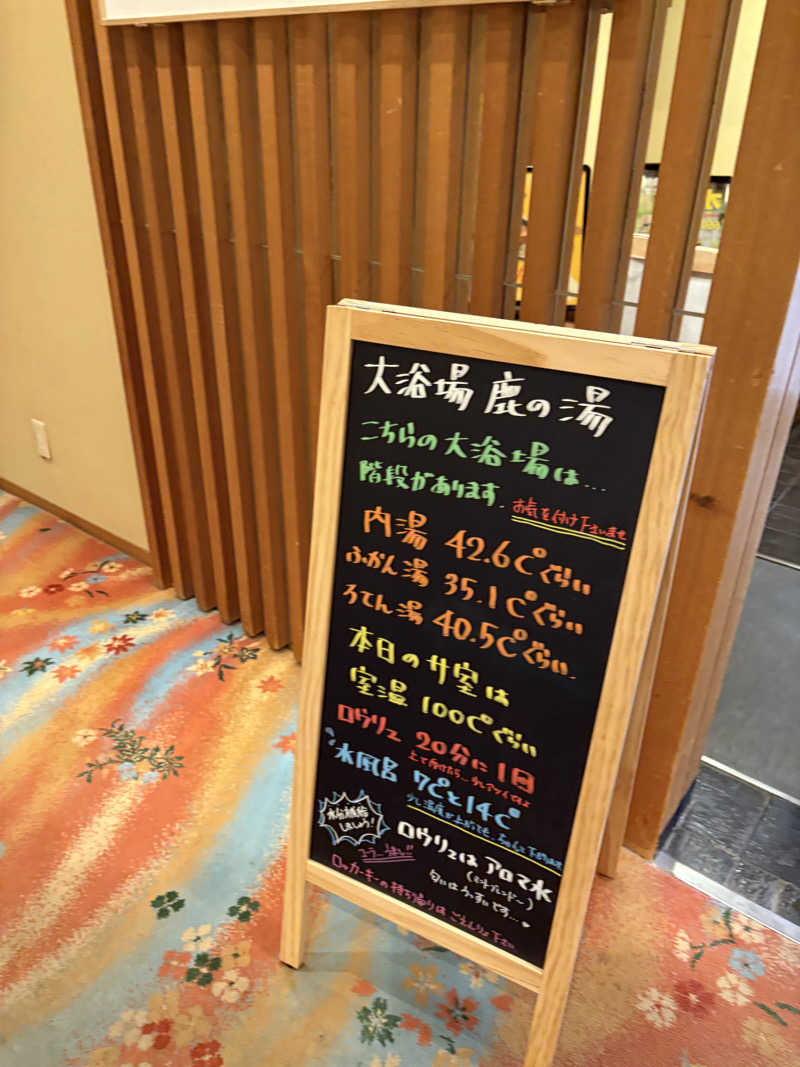 大浴場 鹿の湯
こちらの大浴場は...
階段があります.
お気を付け下さいませ
内湯 42.6℃ぐらい
ふかん湯 35.1℃ぐらい
ろてん湯 40.5℃ぐらい.
本日のサ室は
室温 100℃ぐらい
ロウリュ 20分に1回
水風呂 7℃と14℃
水分補給
しましょう!
ロウリュは アロマ水
匂いはうっすいです...
ロッカーキーの持ち帰りは ごえんりょ下さい